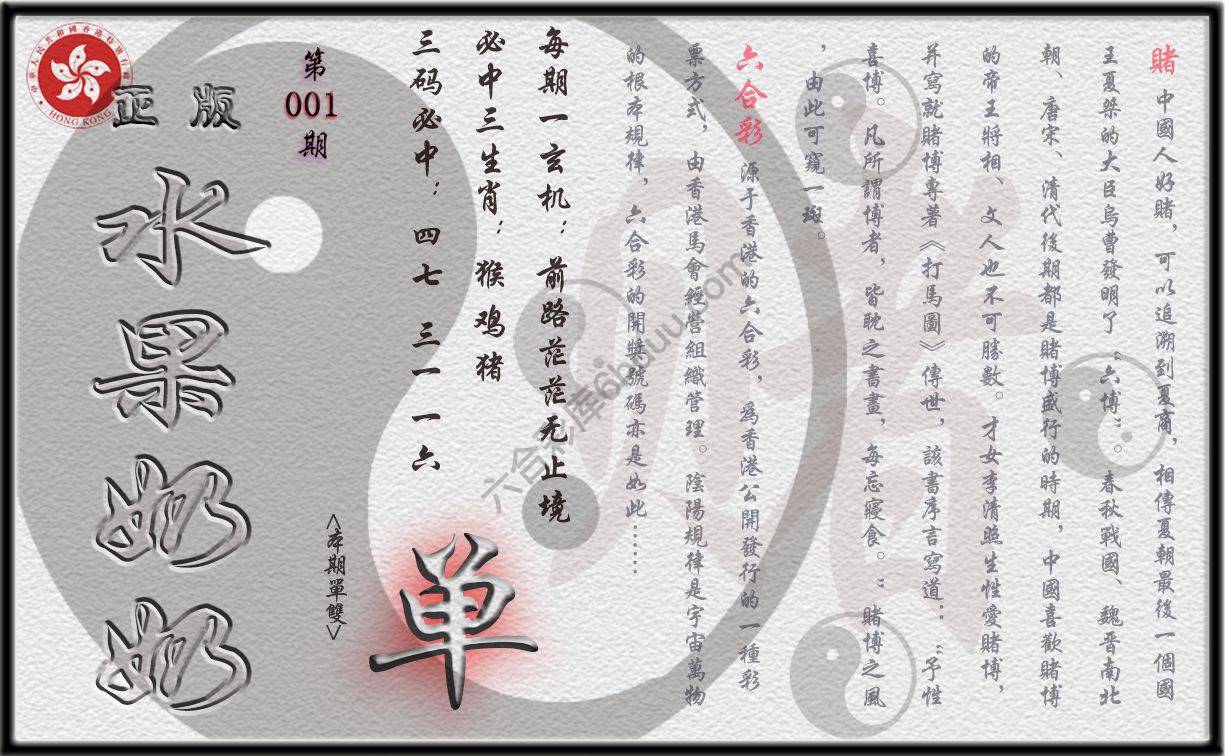 賭 中國人好賭，可以追溯到夏商，相傳夏朝最後一個國
王夏桀的大臣烏曹發明了“六博”。春秋戰國、魏晋南北
朝、唐宋、清代後期都是賭博盛行的時期，中國喜歡賭博
的帝王將相、文人也不可勝數。才女李清照生性愛賭博，
并寫就賭博專著《打馬圖》傳世，該書序言寫道：“予性
喜博。凡所謂博者，皆耽之書畫，每忘寢食。”賭博之風
，由此可窺一斑。
六合彩 源于香港的六合彩，爲香港公開發行的一種彩
票方式，由香港馬會經營組織管理。陰陽規律是宇宙萬物
的根本規律，六合彩的開獎號碼亦是如此……
每期一玄机：前路茫茫无止境
必中三生肖：猴鸡猪
三码必中：四七 三一 一六
单
<本期單雙>
第
001
期
正版
水果奶奶
HONG KONG